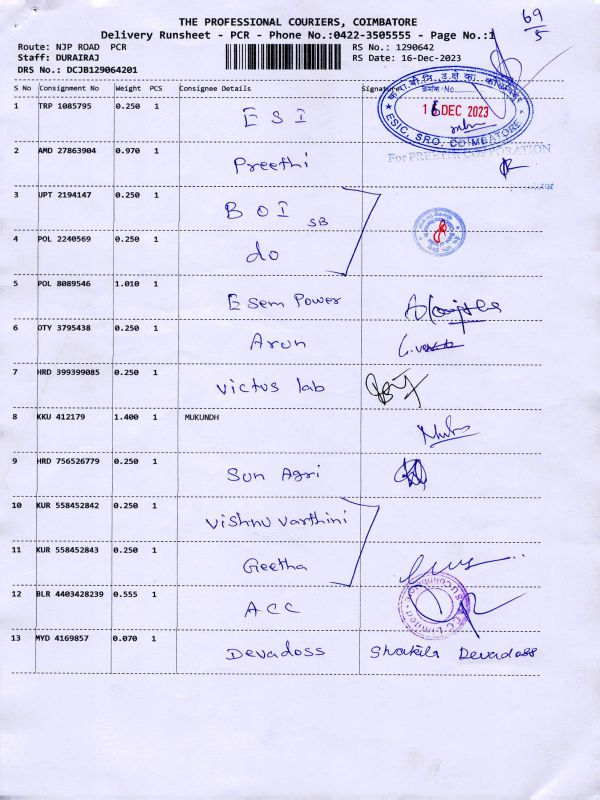 69/5
THE PROFESSIONAL COURIERS, COIMBATORE
Delivery Runsheet - PCR - Phone No.:0422-3505555 - Page No.:1
Route: NJP ROAD PCR RS No.: 1290642
Staff: DURAIRAJ RS Date: 16-Dec-2023
DRS No.: DCJB129064201
S No Consignment No Weight PCS Consignee Details Signature
1 TRP 1085795 0.250 1 E S I
16 DEC 2023
ESIC, SRO, COIMBATORE
2 AMD 27863904 0.970 1 Preethi
For PREETHI CORPORATION
3 UPT 2194147 0.250 1 B O I SB
4 POL 2240569 0.250 1 do
5 POL 8089546 1.010 1 Esem Power
6 OTY 3795438 0.250 1 Arun
7 HRD 399399085 0.250 1 Victus lab
8 KKU 412179 1.400 1 MUKUNDH
9 HRD 756526779 0.250 1 Sun Agri
10 KUR 558452842 0.250 1 Vishnu Varthini
11 KUR 558452843 0.250 1 Geetha
12 BLR 4403428239 0.555 1 A C C
13 MYD 4169857 0.070 1 Devadoss Shakila Devadoss